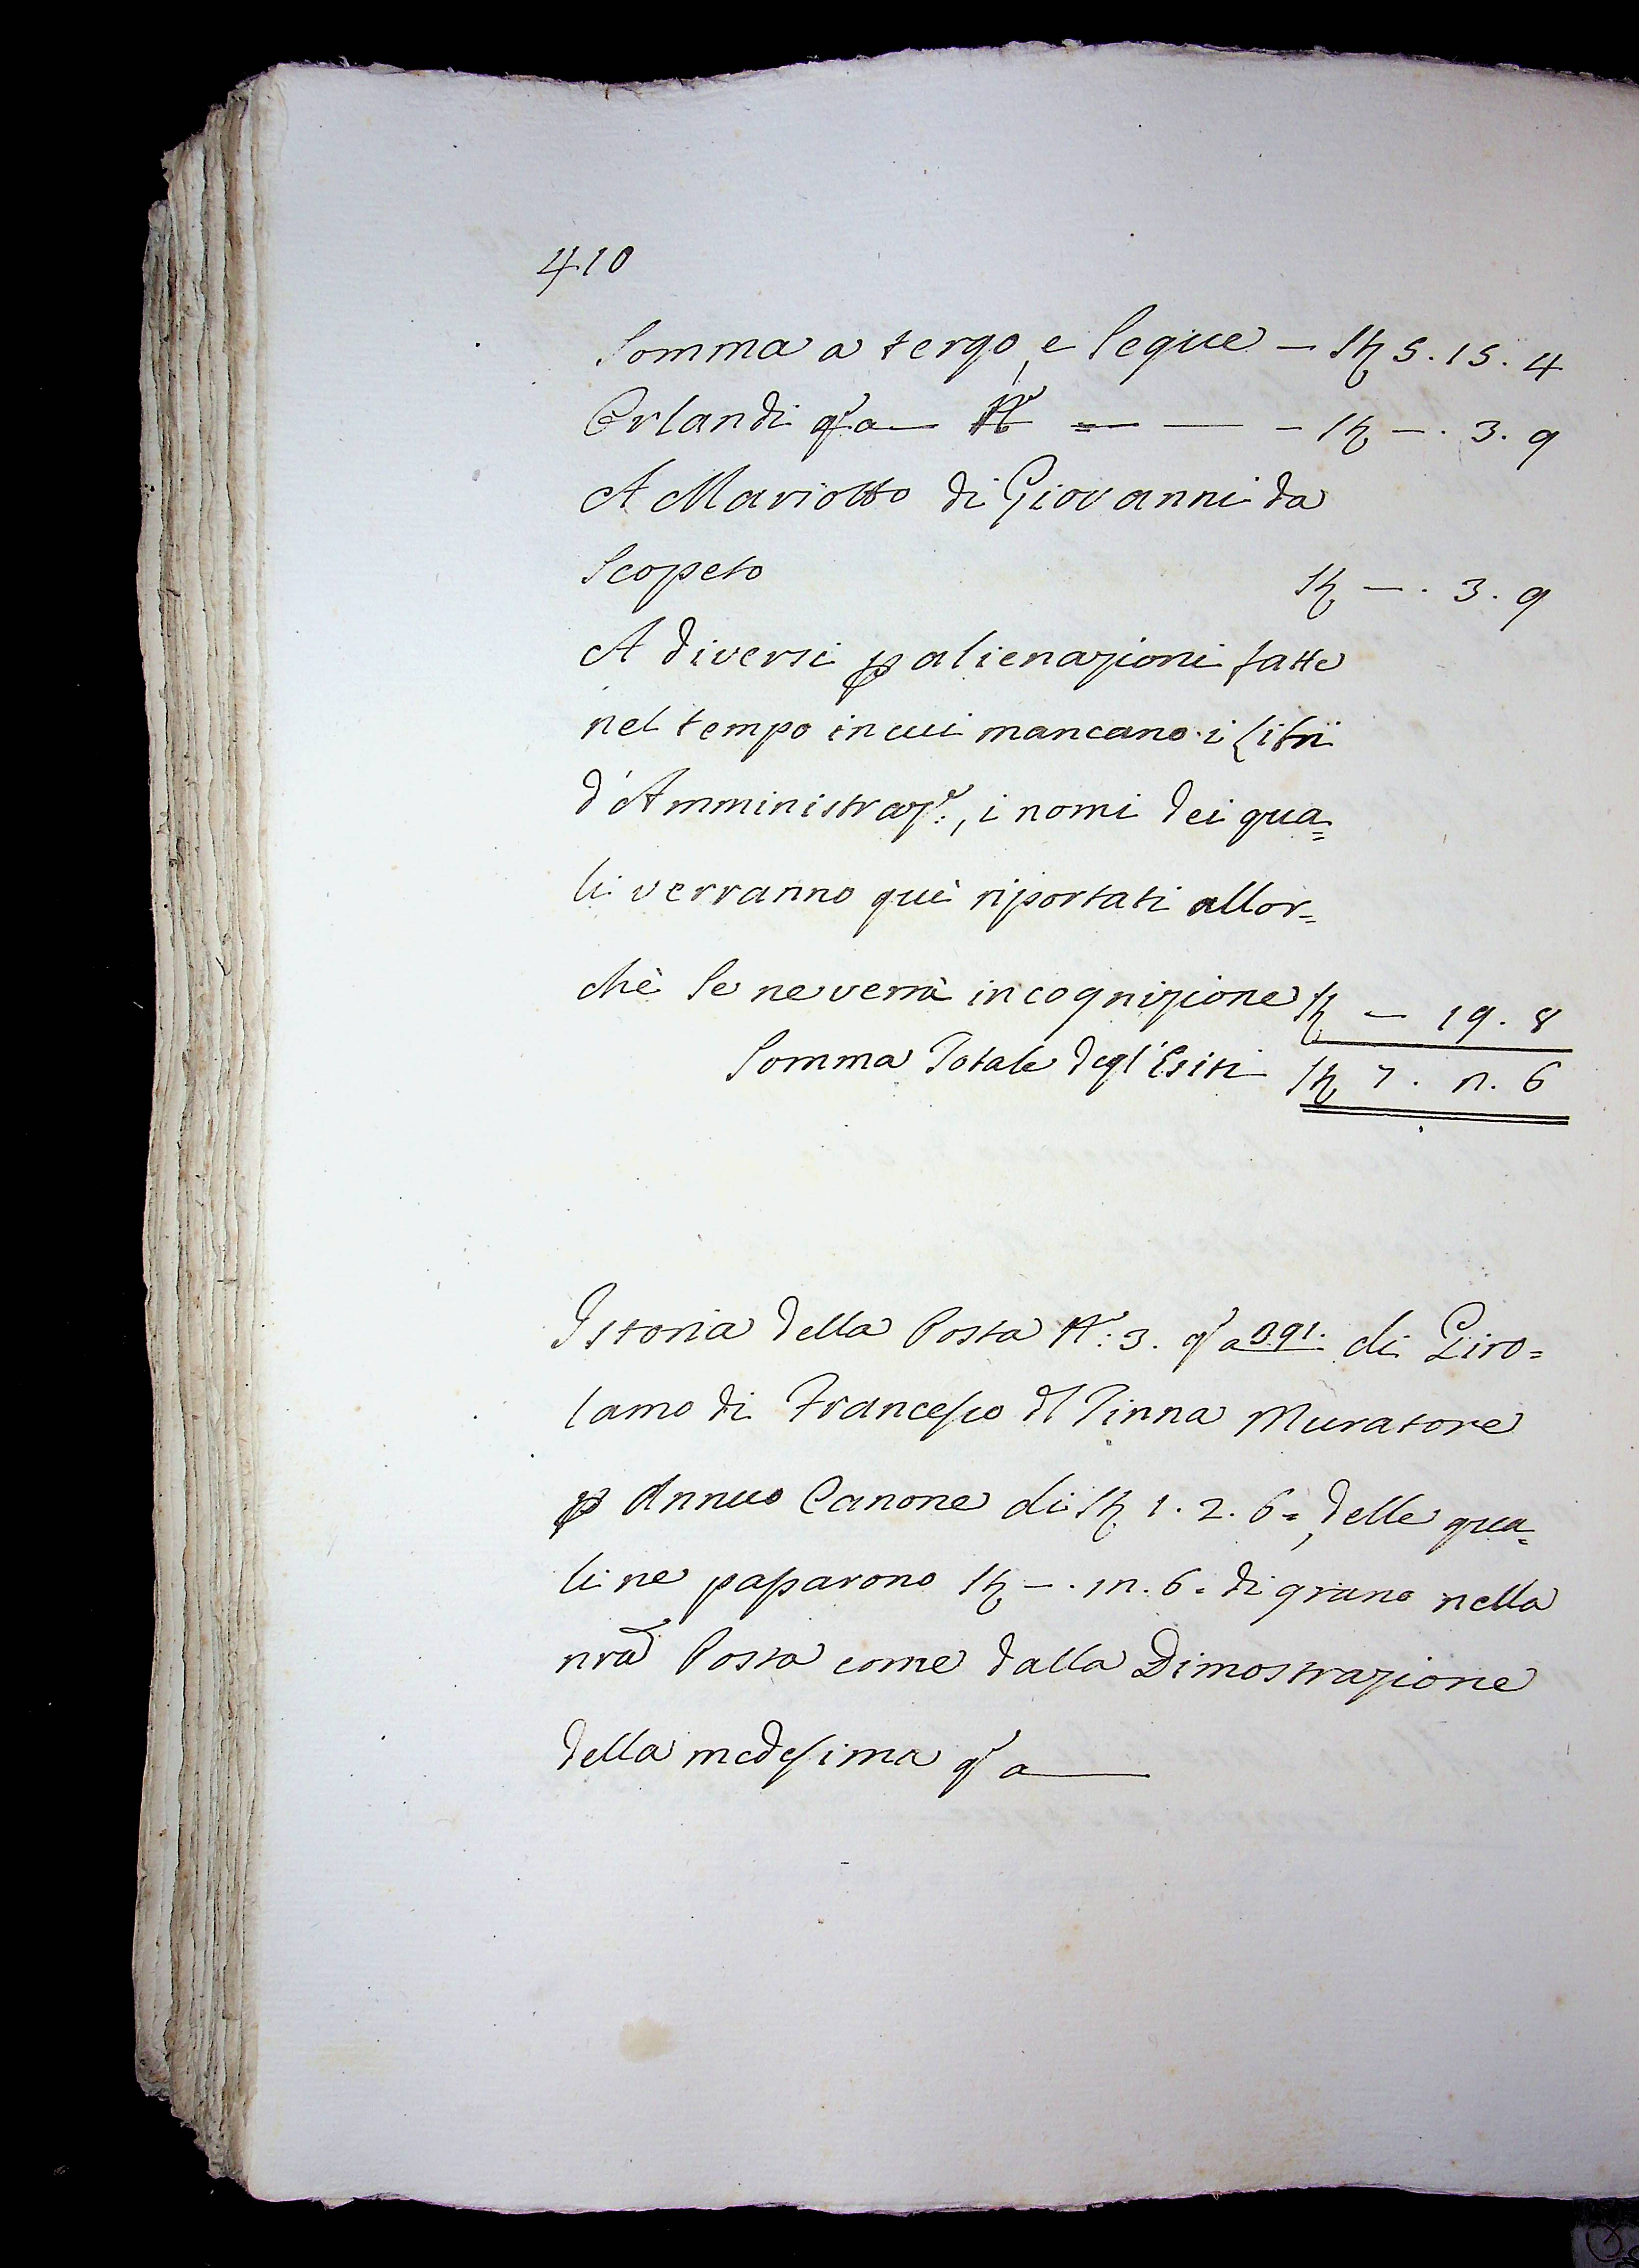 410
Somma a tergo, e Segue — St͞a 5. 15. 4
Orlandi qf a — N° = — — St͞a —. 3. 9
A Mariotto di Giovanni da
Scopeto St͞a —. 3. 9
A diversi p alienazioni fatte
nel tempo in cui mancano i Libri
d'Amministraz.e, i nomi dei qua=
li verranno quì riportati allor=
chè se ne verrà in cognizione St͞a — 19. 8
Somma Totale degl'Esiti St͞a 7. n. 6
Istoria della Posta N°. 3. qf a 391. di Giro=
lamo di Francesco di Pinna Muratore
p Annuo Canone di St͞a 1. 2. 6=, delle qua=
li ne passarono St͞a —. m. 6. di grano nella
nr̃a Posta come dalla Dimostrazione
della medesima qf a —